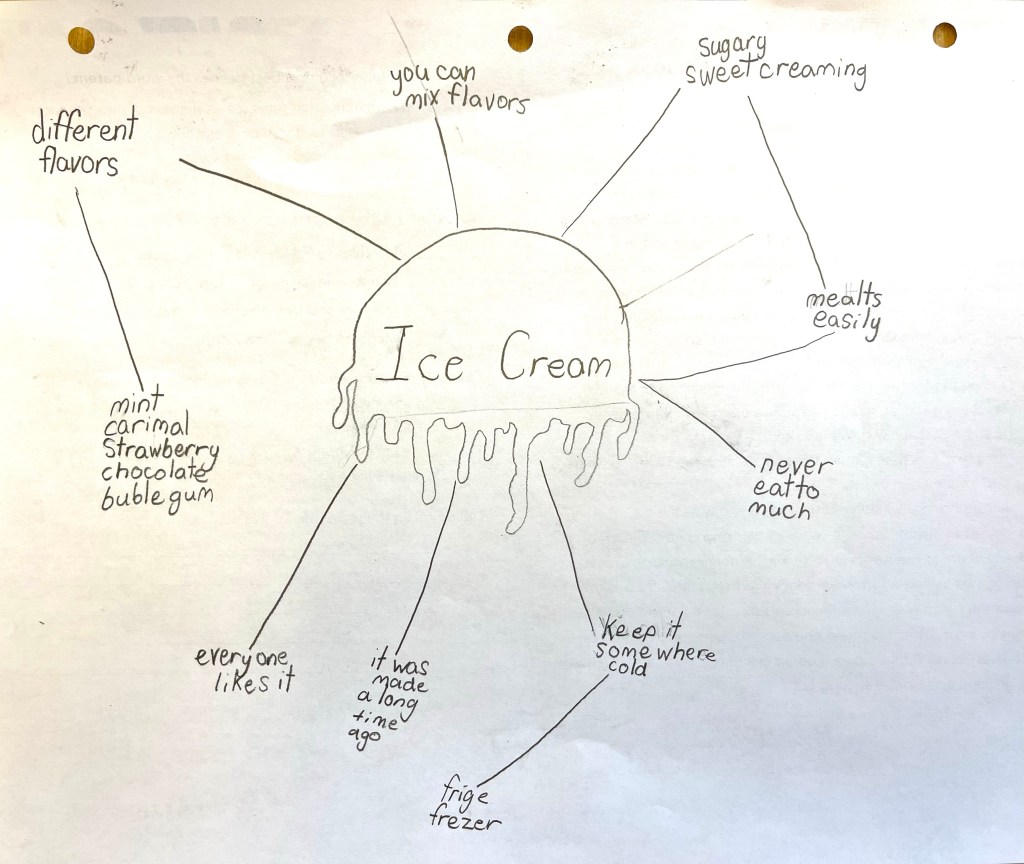 you can
mix flavors
Sugary
sweet creaming
different
flavors
mealts
easily
Ice Cream
mint
carimal
Strawberry
chocolate
buble gum
never
eat to
much
every one
likes it
it was
made
a long
time
ago
Keep it
some where
cold
frige
frezer